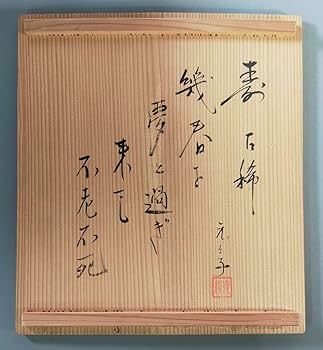 寿 古稀
幾春を
夢と過ぎ
来て
不老不死